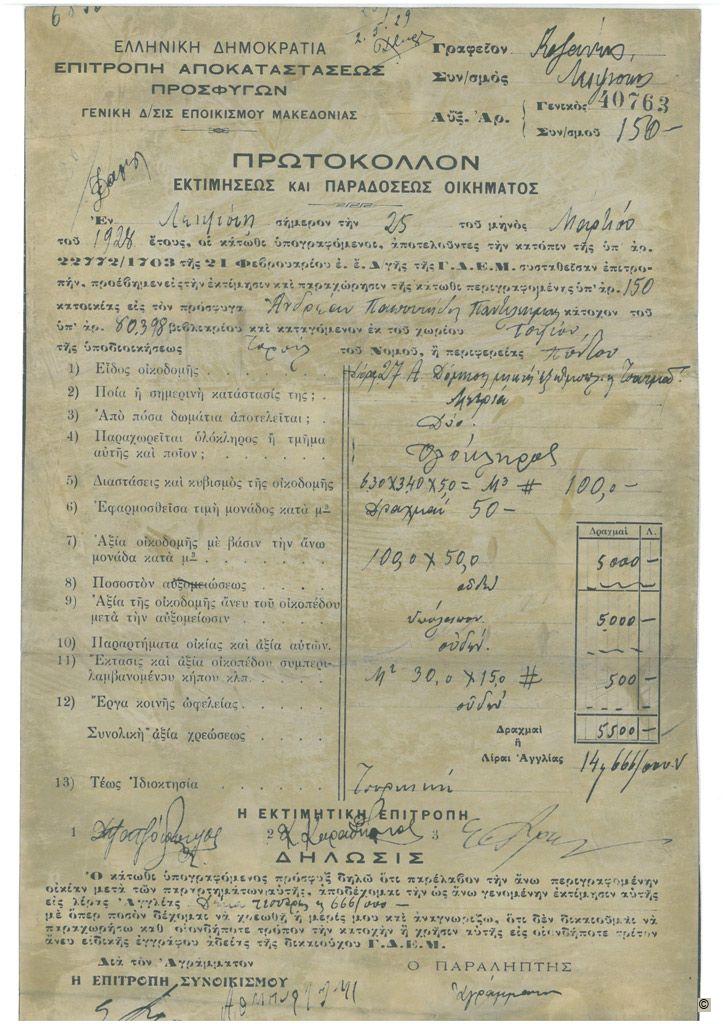 ΕΛΛΗΝΙΚΗ ΔΗΜΟΚΡΑΤΙΑ
ΕΠΙΤΡΟΠΗ ΑΠΟΚΑΤΑΣΤΑΣΕΩΣ
ΠΡΟΣΦΥΓΩΝ
ΓΕΝΙΚΗ Δ/ΣΙΣ ΕΠΟΙΚΙΣΜΟΥ ΜΑΚΕΔΟΝΙΑΣ
Γραφεῖον Κοζάνης
Συν/σμὸς
Αὔξ. Ἀρ. Γενικὸς 40763
Συν/σμοῦ 150-
ΠΡΩΤΟΚΟΛΛΟΝ
ΕΚΤΙΜΗΣΕΩΣ ΚΑΙ ΠΑΡΑΔΟΣΕΩΣ ΟΙΚΗΜΑΤΟΣ
Ἐν σήμερον τὴν 25 τοῦ μηνὸς Μάρτιος
τοῦ 1928 ἔτους, οἱ κάτωθι ὑπογραφόμενοι, ἀποτελοῦντες τὴν κατόπιν τῆς ὑπ' ἀρ.
22772/1703 τῆς 21 Φεβρουαρίου ἐ. ἔ. Δ/γῆς τῆς Γ.Δ.Ε.Μ. συσταθεῖσαν ἐπιτρο-
πήν, προέβημεν εἰς τὴν ἐκτίμησιν καὶ παραχώρησιν τῆς κάτωθι περιγραφομένης ὑπ' ἀρ. 150
κατοικίας εἰς τὸν πρόσφυγα Ἀνδρέαν κάτοχον τοῦ
ὑπ' ἀρ. 80,398 βιβλιαρίου καὶ καταγόμενον ἐκ τοῦ χωρίου
τῆς ὑποδιοικήσεως τοῦ Νομοῦ, ἢ περιφερείας Πόντου
1) Εἶδος οἰκοδομῆς . . . . . . . . 27 Α
2) Ποία ἡ σημερινὴ κατάστασίς της ; . Μετρία
3) Ἀπὸ πόσα δωμάτια ἀποτελεῖται ; . Δύο
4) Παραχωρεῖται ὁλόκληρος ἢ τμῆμα
αὐτῆς καὶ ποῖον ; . . . . . . Ὁλόκληρος
5) Διαστάσεις καὶ κυβισμὸς τῆς οἰκοδομῆς 630 X 340 X 5,0 = Μ³ # 100,0 -
6) Ἐφαρμοσθεῖσα τιμὴ μονάδος κατὰ μ³ Δραχμαὶ 50 -
Δραχμαί Λ.
7) Ἀξία οἰκοδομῆς μὲ βάσιν τὴν ἄνω
μονάδα κατὰ μ³ . . . . . . 100,0 X 50,0 5000 -
8) Ποσοστὸν αὐξομειώσεως . . . . . οὐδὲν
9) Ἀξία τῆς οἰκοδομῆς ἄνευ τοῦ οἰκοπέδου
μετὰ τὴν αὐξομείωσιν . . . . . ὑπόλοιπον 5000 -
10) Παραρτήματα οἰκίας καὶ ἀξία αὐτῶν. οὐδὲν
11) Ἔκτασις καὶ ἀξία οἰκοπέδου συμπερι-
λαμβανομένου κήπου κλπ. . . . . Μ² 30,0 X 15,0 # 500 -
12) Ἔργα κοινῆς ὠφελείας . . . . . οὐδὲν
Συνολικὴ ἀξία χρεώσεως . . . . Δραχμαὶ 5500 -
ἢ
Λίραι Ἀγγλίας 14, 666/
13) Τέως Ἰδιοκτησία . . . . . . Τουρκικὴ
Η ΕΚΤΙΜΗΤΙΚΗ ΕΠΙΤΡΟΠΗ
1 2 3
ΔΗΛΩΣΙΣ
Ὁ κάτωθι ὑπογραφόμενος πρόσφυξ δηλῶ ὅτι παρέλαβον τὴν ἄνω περιγραφομένην
οἰκίαν μετὰ τῶν παραρτημάτων αὐτῆς, ἀποδέχομαι τὴν ὡς ἄνω γενομένην ἐκτίμησιν αὐτῆς
εἰς λίρας Ἀγγλίας Δέκα τέσσαρες 666/000 -
μὲ ὅπερ ποσὸν δέχομαι νὰ χρεωθῇ ἡ μερίς μου καὶ ἀναγνωρίζω, ὅτι δὲν δικαιοῦμαι νὰ
παραχωρήσω καθ' οἱονδήποτε τρόπον τὴν κατοχὴν ἢ χρῆσιν αὐτῆς εἰς οἱονδήποτε τρίτον
ἄνευ εἰδικῆς ἐγγράφου ἀδείας τῆς δικαιούχου Γ.Δ.Ε.Μ.
Διὰ τὸν Ἀγράμματον
Η ΕΠΙΤΡΟΠΗ ΣΥΝΟΙΚΙΣΜΟΥ
Ο ΠΑΡΑΛΗΠΤΗΣ
Ἀγράμματος
©